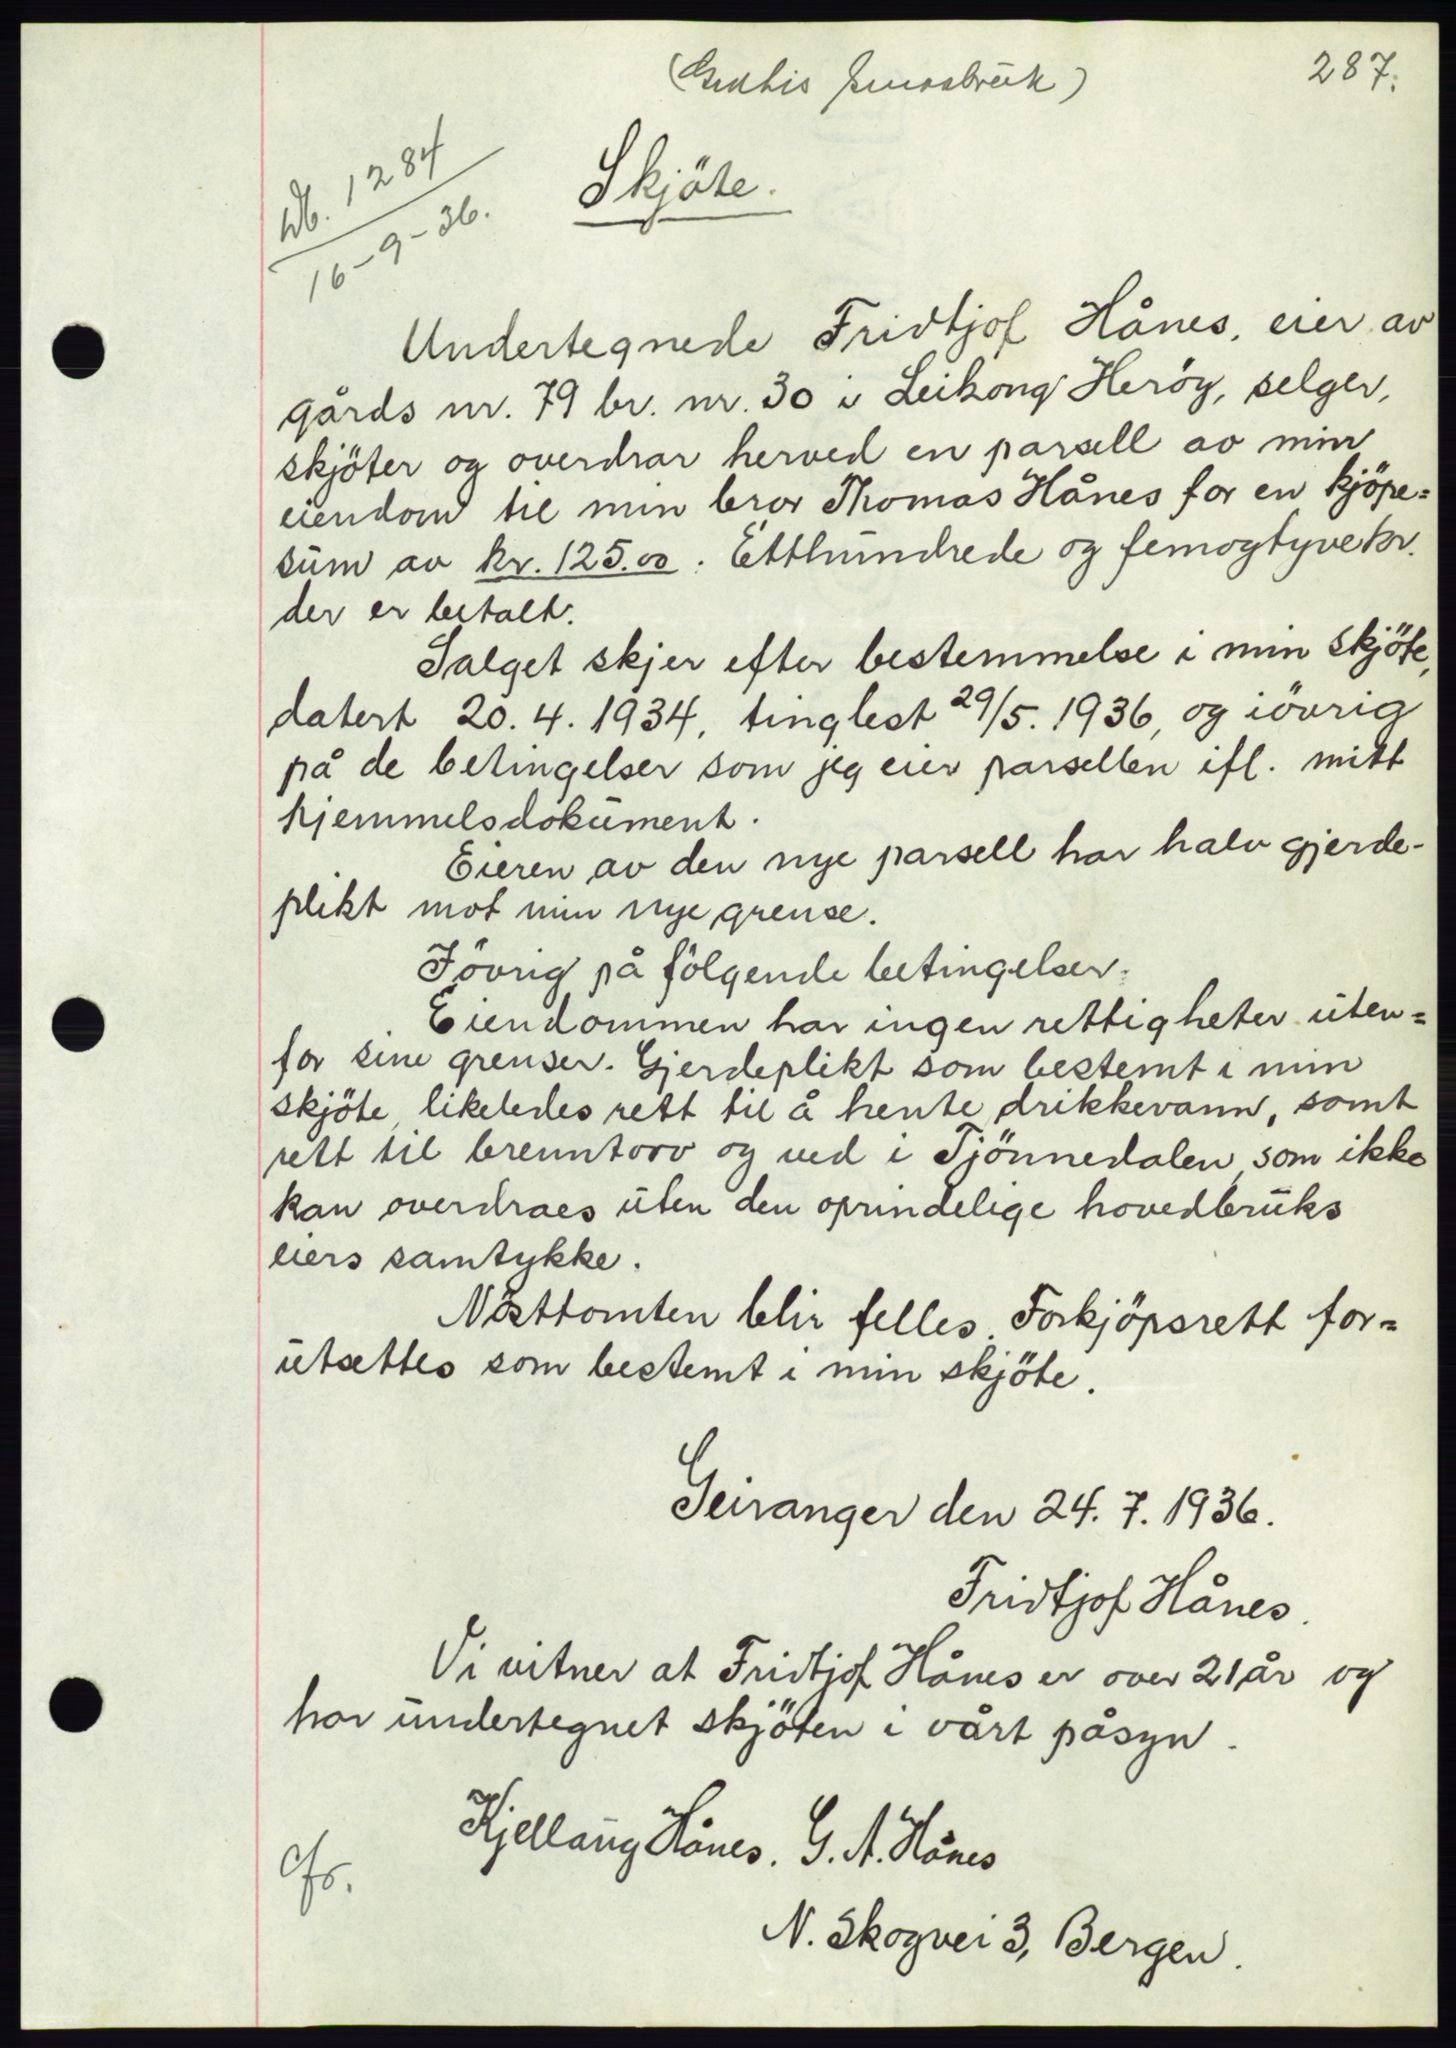 (Gratis småbruk)
287.
Db. 1284
16-9-36.
Skjöte.
Undertegnede Fridtjof Hånes, eier av
gårds nr. 79 br. nr. 30 i Leikong Heröy, selger,
skjöter og overdrar herved en parsell av min
eiendom til min bror Thomas Hånes for en kjöpe=
sum av kr. 125.00. Etthundrede og femogtyve kr.
der er betalt.
Salget skjer efter bestemmelse i min skjöte,
datert 20. 4. 1934, tinglest 29/5. 1936, og iövrig
på de betingelser som jeg eier parsellen ifl. mitt
hjemmelsdokument.
Eieren av den nye parsell har halv gjerde-
plikt mot min nye grense.
Iövrig på fölgende betingelser:
Eiendommen har ingen rettigheter uten=
for sine grenser. Gjerdeplikt som bestemt i min
skjöte, likeledes rett til å hente drikkevann, samt
rett til brenntorv og ved i Tjönnedalen, som ikke
kan overdraes uten den oprindelige hovedbruks
eiers samtykke.
Nösttomten blir felles. Forkjöpsrett for=
utsettes som bestemt i min skjöte.
Geiranger den 24. 7. 1936.
Fridtjof Hånes.
Vi vitner at Fridtjof Hånes er over 21 år og
har undertegnet skjöten i vårt påsyn.
Kjellaug Hånes. G. A. Hånes
N. Skogvei 3, Bergen.